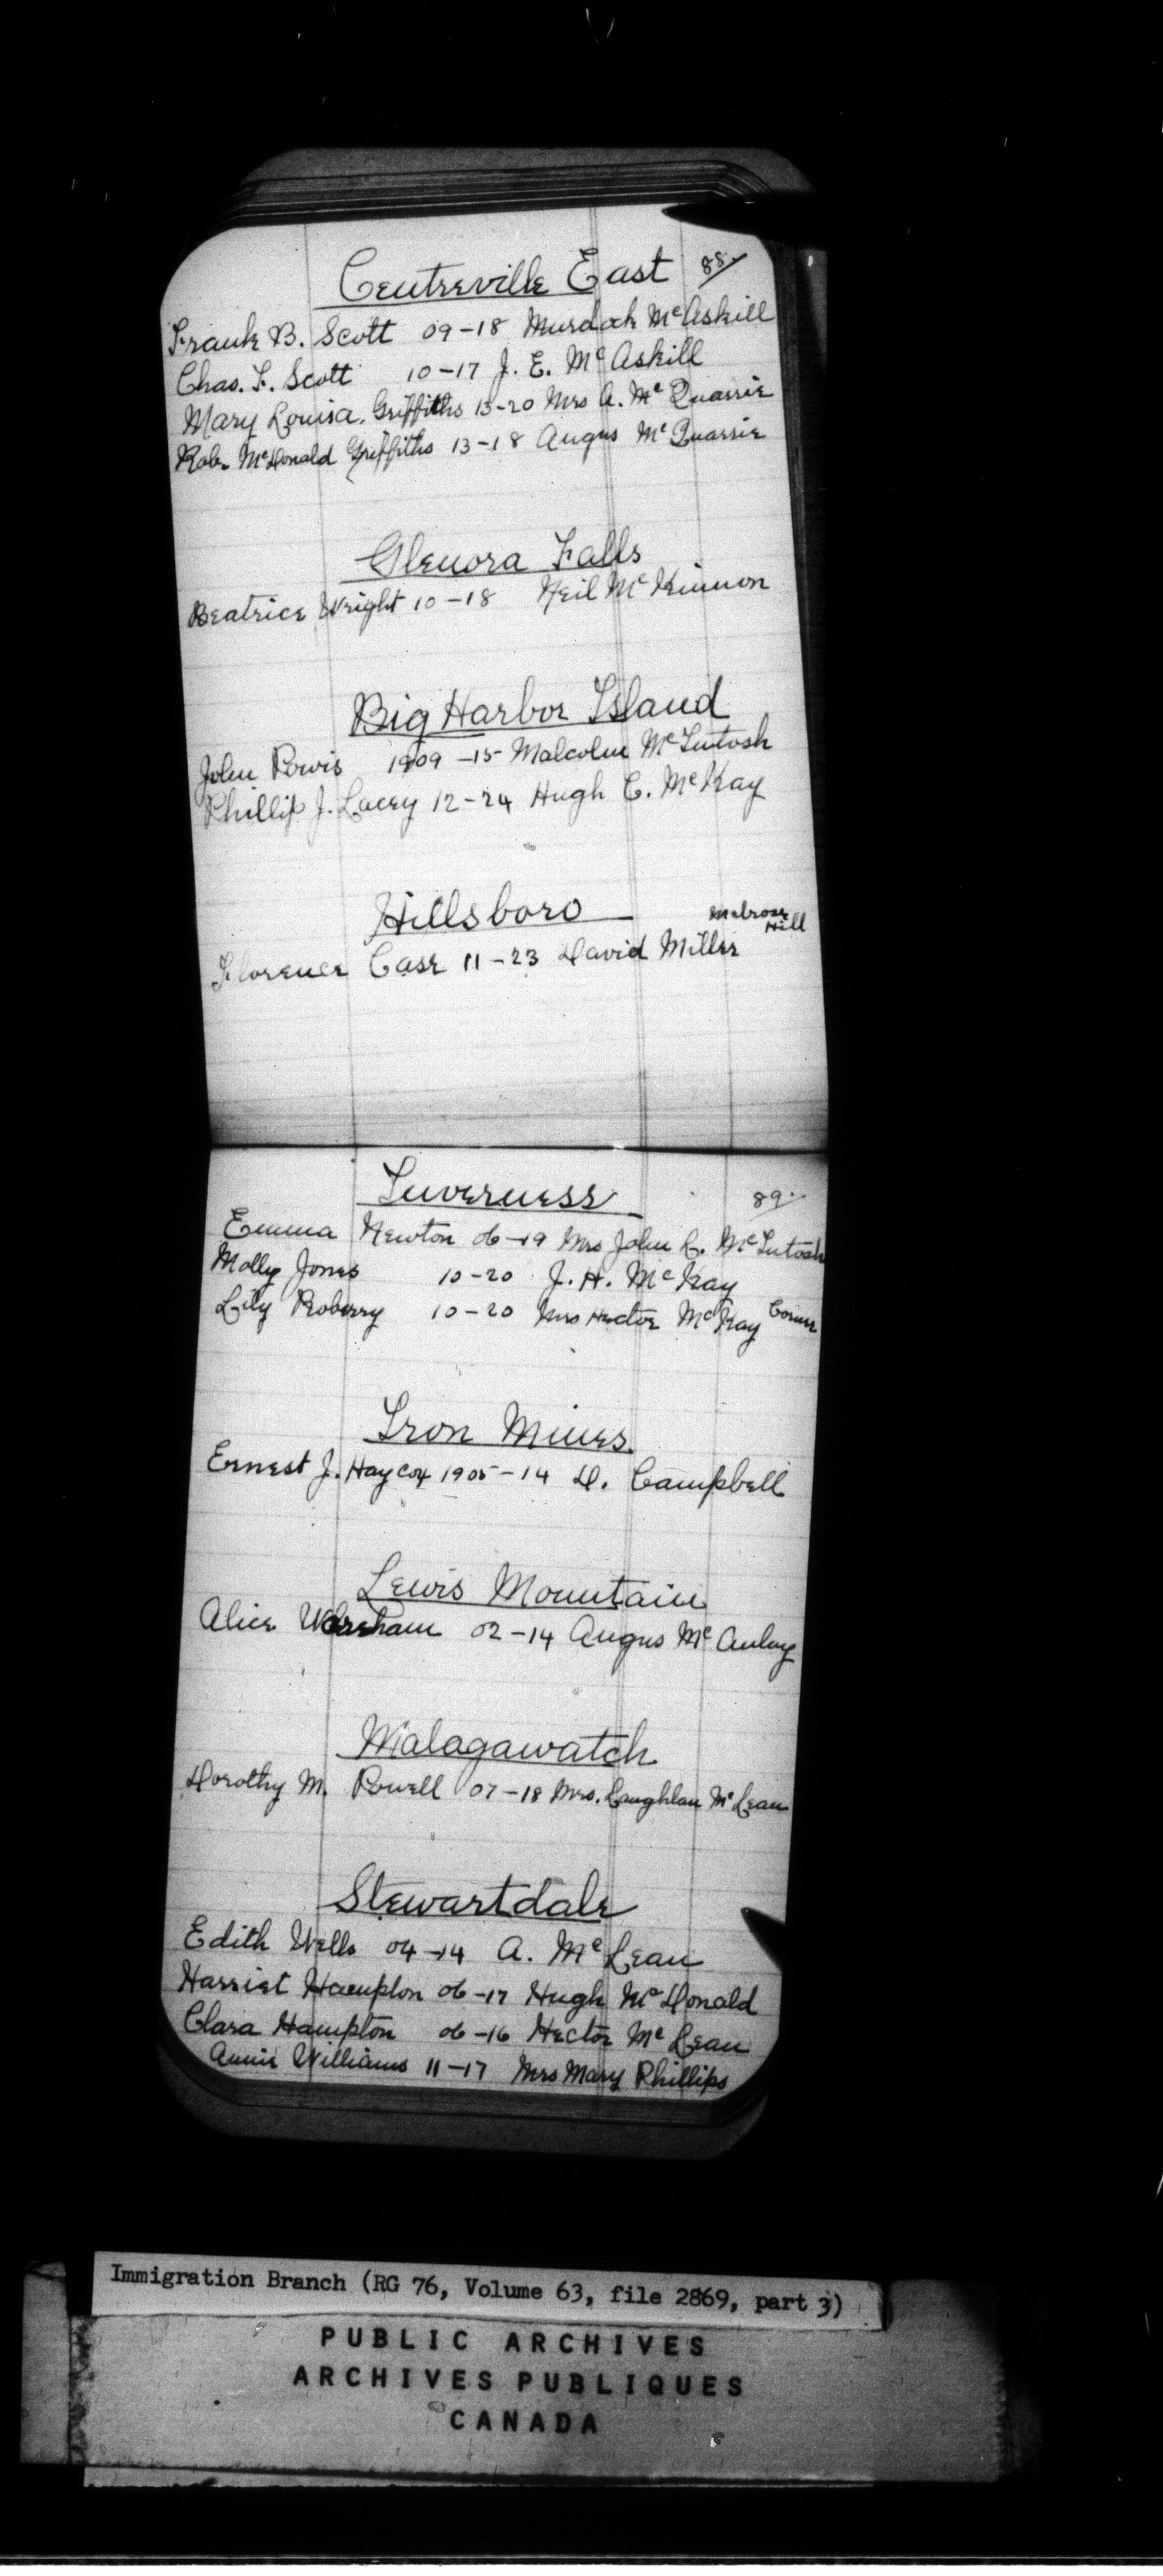 88.
Centreville East
Frank B. Scott 09-18 Murdoch McAskill
Chas. F. Scott 10-17 J. E. McAskill
Mary Louisa Griffiths 13-20 Mrs A. McQuarrie
Rob. McDonald Griffiths 13-18 Angus McQuarrie
Glenora Falls
Beatrice Wright 10-18 Neil McKinnon
Big Harbor Island
John Powis 1909-15 Malcolm McIntosh
Phillip J. Lacey 12-24 Hugh C. McKay
Hillsboro
Melrose Hill
Florence Case 11-23 David Miller
Inverness 89.
Emma Newton 06-19 Mrs John C. McIntosh
Molly Jones 10-20 J. H. McKay
Lily Roberry 10-20 Mrs Hector McKay
Iron Mines
Ernest J. Haycox 1905-14 D. Campbell
Lewis Mountain
Alice Wareham 02-14 Angus McAulay
Malagawatch
Dorothy M. Powell 07-18 Mrs. Laughlan McLean
Stewartdale
Edith Wells 04-14 A. McLean
Harriet Hampton 06-17 Hugh McDonald
Clara Hampton 06-16 Hector McLean
Annie Williams 11-17 Mrs Mary Phillips
Immigration Branch (RG 76, Volume 63, file 2869, part 3)
PUBLIC ARCHIVES
ARCHIVES PUBLIQUES
CANADA